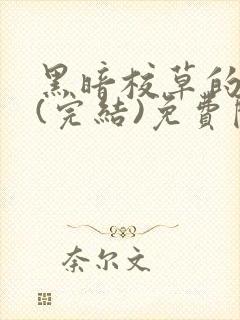 黑暗校草的
(完結)免費
奈尔文